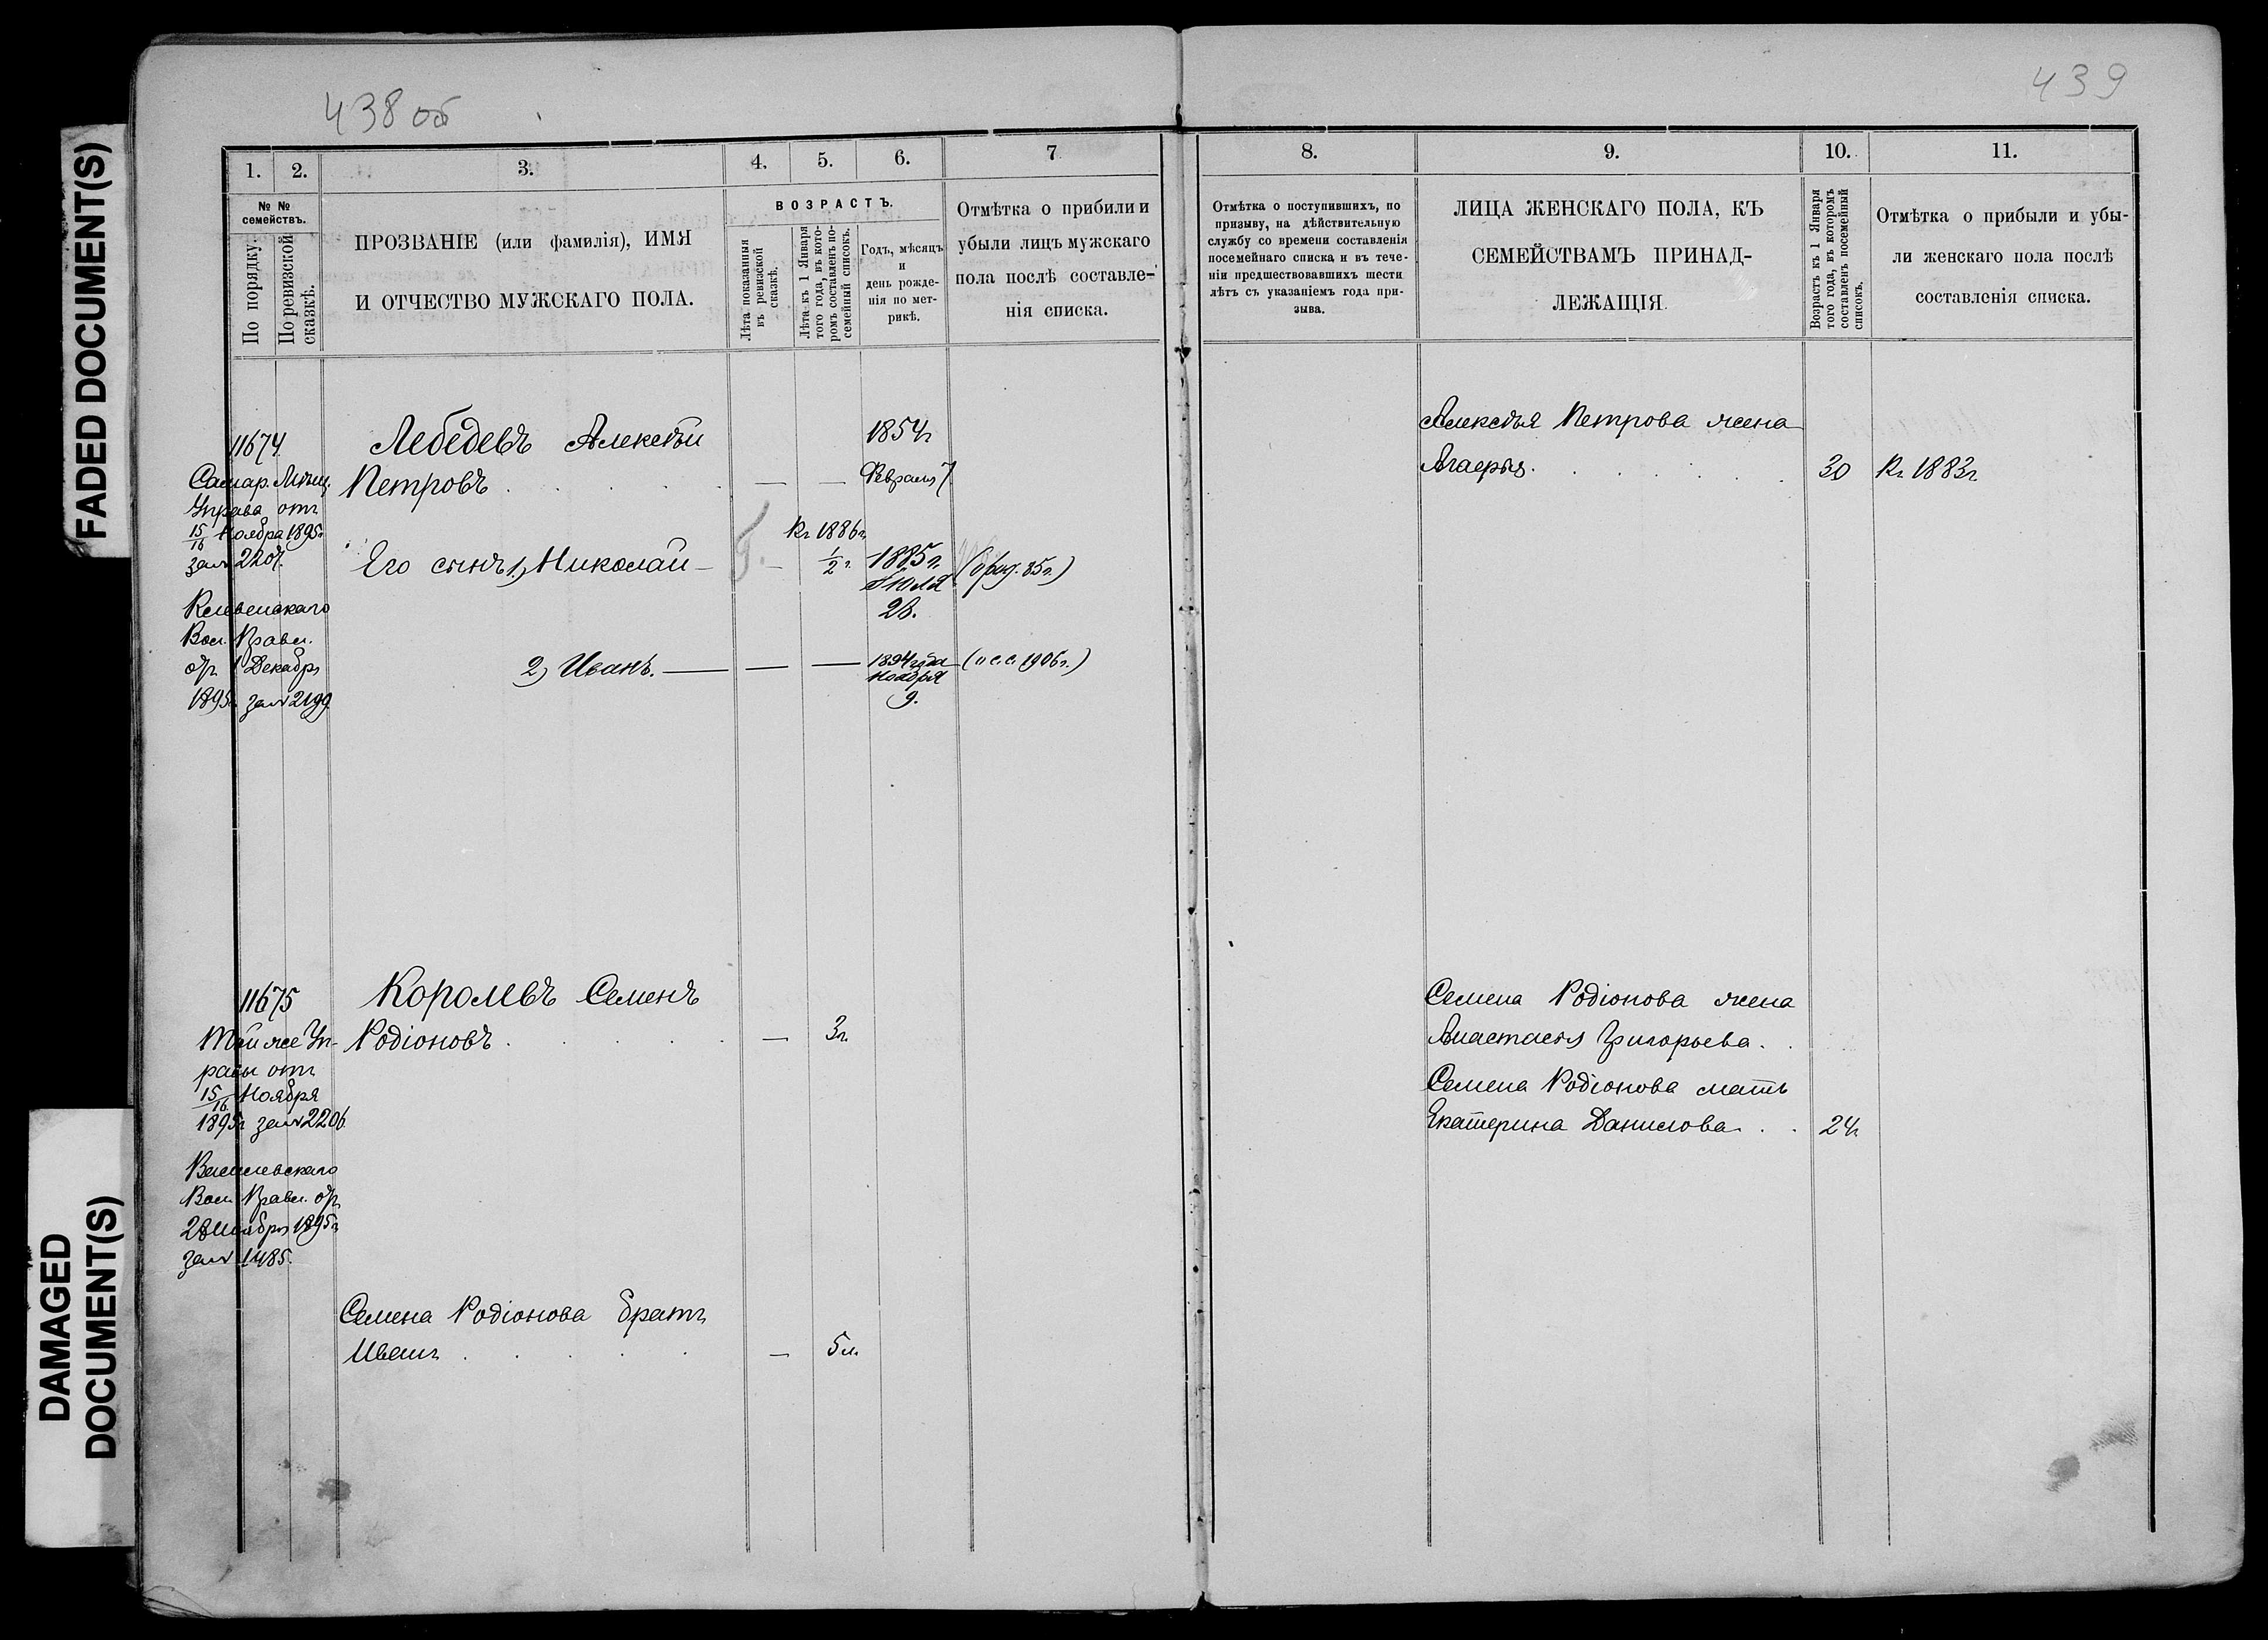 FADED DOCUMENT(S)
DAMAGED
DOCUMENT(S)
438 об
1.
2.
3.
4.
5.
6.
7
№ №
семействъ.
По порядку.
По ревизской
сказкѣ.
ПРОЗВАНІЕ (или фамилія), ИМЯ
И ОТЧЕСТВО МУЖСКАГО ПОЛА.
ВОЗРАСТЪ.
Лѣта показанныя
въ ревизской
сказкѣ.
Лѣта къ 1 Января
того года, въ кото-
ромъ составленъ по-
семейный списокъ.
Годъ, мѣсяцъ
и
день рожде-
нія по мет-
рикѣ.
Отмѣтка о прибыли и
убыли лицъ мужскаго
пола послѣ составле-
нія списка.
11674
Самар. Мѣщ.
Управа отъ
15/16 Ноября 1895г.
за № 2207.
Вол. Правл.
отъ 1 Декабря
1895г. за № 2199.
Лебедевъ Алексѣй
Петровъ — —
1854г
Февраля 7
Его сынъ 1, Николай —
Къ 1886г.
1/2 г.
1885г.
Іюля
28.
2) Иванъ. — — —
1894 года
Ноября
9.
(п с.с. 1906г.)
11675
Той же Уп-
равы отъ
15/16 Ноября
1895г за № 2206
Василевскаго
Вол. Правл. отъ
28 Ноября 1895г
за № 1485.
Королевъ Семенъ
Родіоновъ — 3г.
Семена Родіонова братъ
Иванъ — 5л.
439
8.
9.
10.
11.
Отмѣтка о поступившихъ, по
призыву, на дѣйствительную
службу со времени составленія
посемейнаго списка и въ тече-
ніи предшествовавшихъ шести
лѣтъ съ указаніемъ года при-
зыва.
ЛИЦА ЖЕНСКАГО ПОЛА, КЪ
СЕМЕЙСТВАМЪ ПРИНАД-
ЛЕЖАЩІЯ.
Возрастъ къ 1 Января
того года, въ которомъ
составленъ посемейный
списокъ.
Отмѣтка о прибыли и убы-
ли женскаго пола послѣ
составленія списка.
Алексѣя Петрова жена
30 Къ 1883г.
Семена Родіонова жена
Анастасія Григорьева.
Семена Родіонова мать
Екатерина Данилова. 24г